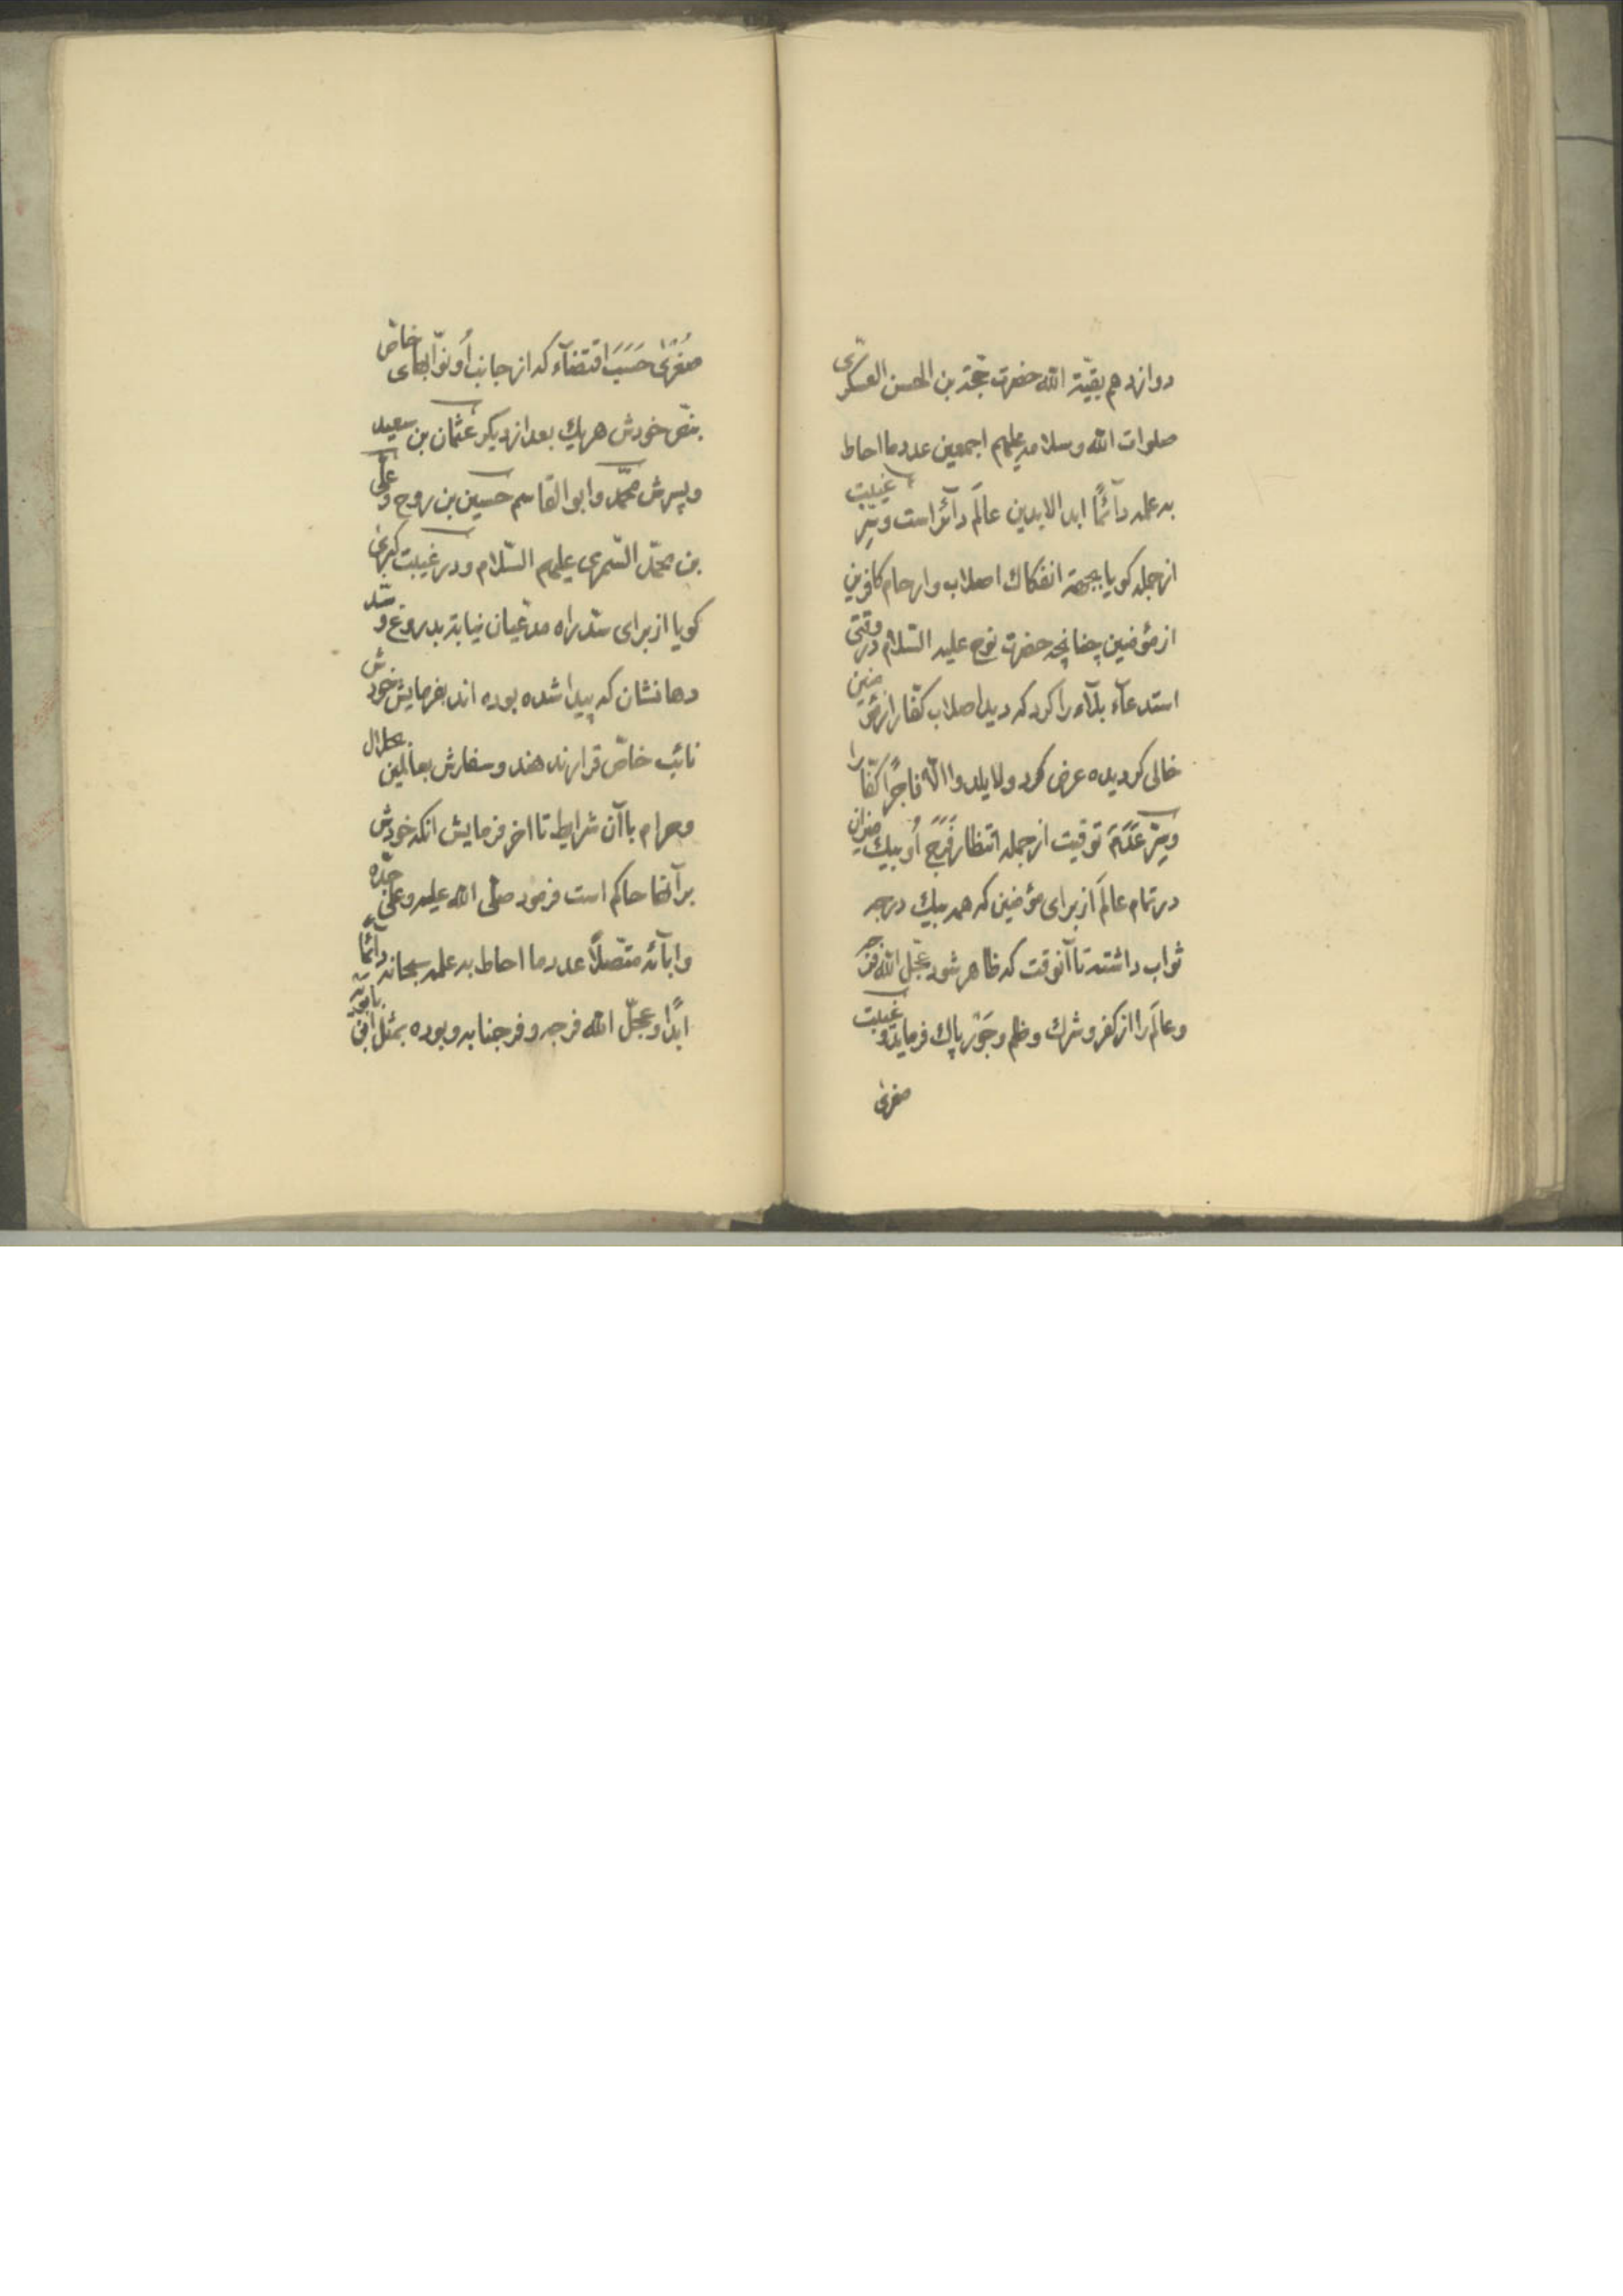 دوازدهم بقیّة الله حضرت حجّة بن الحسن العسکری
صلوات الله وسلامه علیهم اجمعین عدد ما احاط
به علمه دآئمًا ابد الابدین عالَم دآئر است وسِرّ غیبت
ازجمله کویا بجهة انفکاك اصلاب وارحام کافرین
از مؤمنین چنانچه حضرت نوح علیه السّلام در وقتی
استدعآء بلآء را کرد که دید اصلاب کفّار از مؤمنین
خالی کردیده عرض کرد ولا یلدوا الّا فاجرًا کفّارا
وسِرّ عَدَم توقیت ازجمله انتظار فَرَج اُو بیك میزان
در تمام عالَم از برای مؤمنین که همه بیك درجه
ثواب داشته تا آنوقت که ظاهر شود عجّل الله فرجه
وعالَم را از کفر وشرك وظلم وجَوْر پاك فرماید و غیبت
صغریٰ
صُغریٰ حَسَبَ اقتضآء که از جانب اُو نوّابهای خاصّ
بنصّ خودش هریك بعد از دیکر عثمان بن سعید
وپسرش محمّد وابوالقاسم حسین بن روح و علی
بن محمّد السّمری علیهم السّلام ودر غیبت کبریٰ
کویا از برای سدّ راه مدّعیان نیابة بدروغ و سدّ
دهانشان که پیدا شده بوده اند بفرمایش خودش
نائب خاصّ قرار ندهند وسفارش بعالمین بحلال
وحرام با آن شرایط تا اخر فرمایش انکه خودش
بر آنها حاکم است فرمود صلّی الله علیه وعلی جدّه
وابآئه متّصلًا عدد ما احاط به علمه سبحانه دآئمًا
ابدًا وعجّل الله فرجه وفرجنا به وبوده بمثل